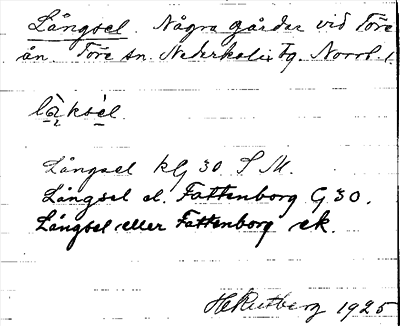 Långsel. Några gårdar vid Töre
ån Töre sn. Nederkalix tg. Norrb. l
Långsel kG 30. S M.
Långsel el. Fattenborg G 30.
Långsel eller Fattenborg ek.
H Rutberg 1925